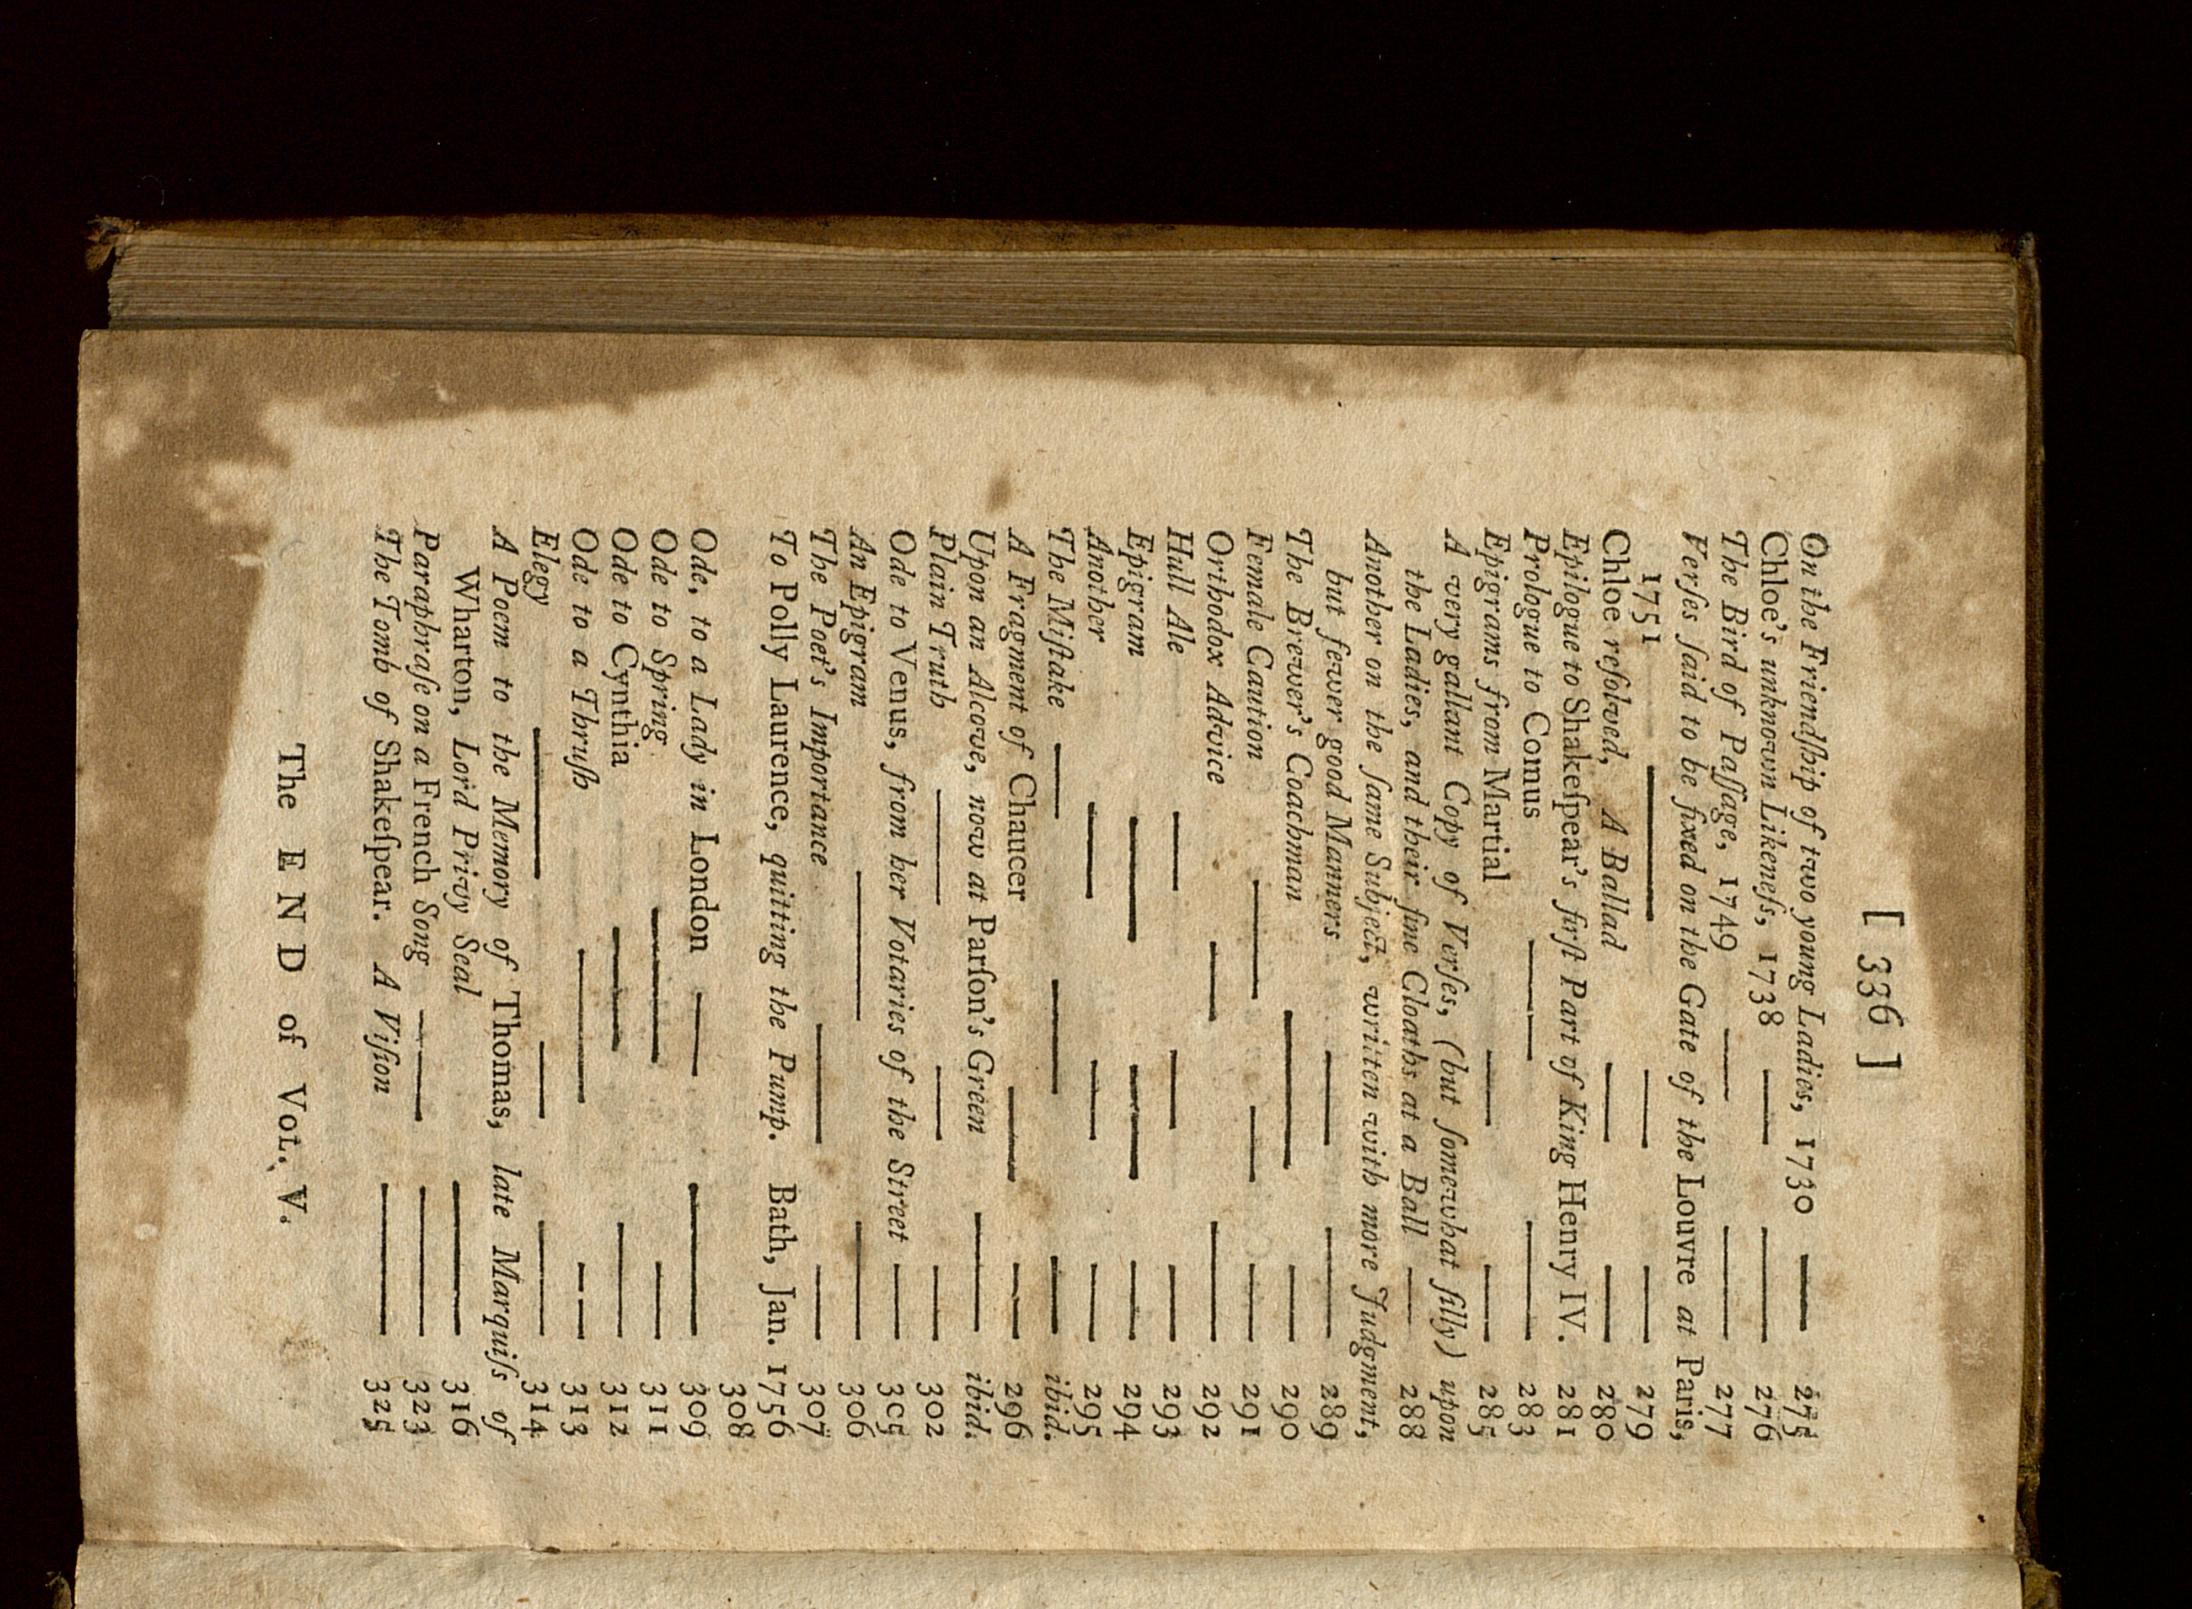 [ 336 ]
On the Friendſhip of two young Ladies, 1730 — 275
Chloe's unknown Likeneſs, 1738 — — 276
The Bird of Paſſage, 1749 — — 277
Verſes ſaid to be fixed on the Gate of the Louvre at Paris,
1751 — — — 279
Chloe reſolved, A Ballad — — 280
Epilogue to Shakeſpear's firſt Part of King Henry IV. 281
Prologue to Comus — — — 283
Epigrams from Martial — — 285
A very gallant Copy of Verſes, (but ſomewhat ſilly) upon
the Ladies, and their fine Cloaths at a Ball — 288
Another on the ſame Subject, written with more Judgment,
but fewer good Manners — — 289
The Brewer's Coachman — — 290
Female Caution — — — 291
Orthodox Advice — — 292
Hull Ale — — — 293
Epigram — — — 294
Another — — — 295
The Miſtake — — — ibid.
A Fragment of Chaucer — — — 296
Upon an Alcove, now at Parſon's Green — ibid.
Plain Truth — — — 302
Ode to Venus, from her Votaries of the Street — 305
An Epigram — — 306
The Poet's Importance — — 307
To Polly Laurence, quitting the Pump. Bath, Jan. 1756
308
Ode, to a Lady in London — — 309
Ode to Spring — — 311
Ode to Cynthia — — 312
Ode to a Thruſh — — — 313
Elegy — — — 314
A Poem to the Memory of Thomas, late Marquiſs of
Wharton, Lord Privy Seal — 316
Paraphraſe on a French Song — — — 323
The Tomb of Shakeſpear. A Viſion — 325
The END of VOL. V.